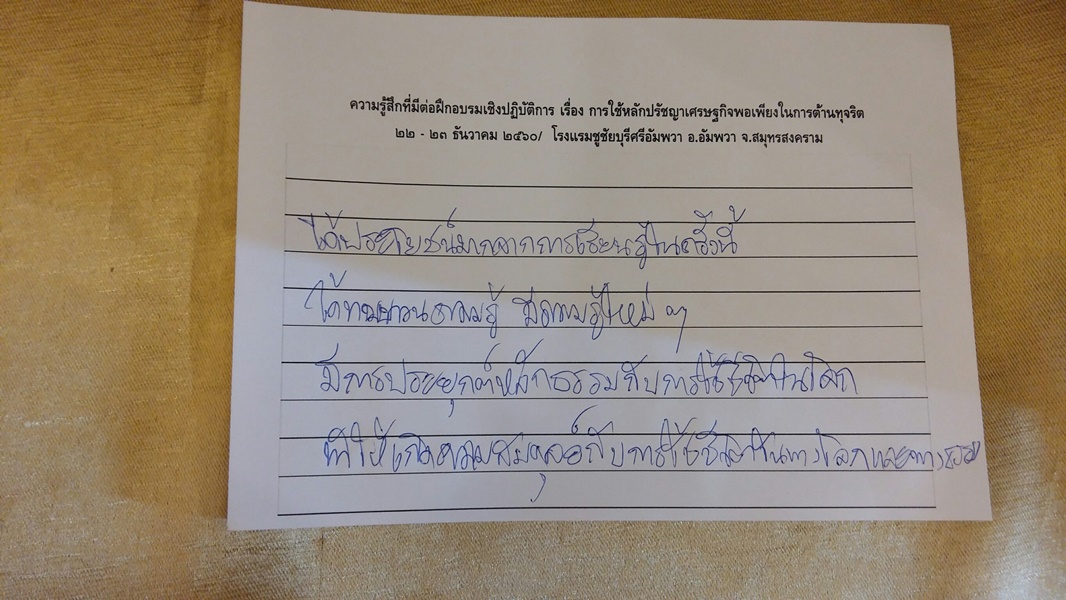 ความรู้สึกที่มีต่อฝึกอบรมเชิงปฏิบัติการ เรื่อง การใช้หลักปรัชญาเศรษฐกิจพอเพียงในการต้านทุจริต
๒๒ - ๒๓ ธันวาคม ๒๕๖๐/ โรงแรมชูชัยบุรีศรีอัมพวา อ.อัมพวา จ.สมุทรสงคราม
ได้ประโยชน์มากจากการเรียนรู้ในครั้งนี้
ได้ทบทวนความรู้ มีความรู้ใหม่ ๆ
มีการประยุกต์หลักธรรมกับการใช้ชีวิตในโลก
ทำให้เกิดความสมดุลย์กับการใช้ชีวิตในทางโลกและทางธรรม